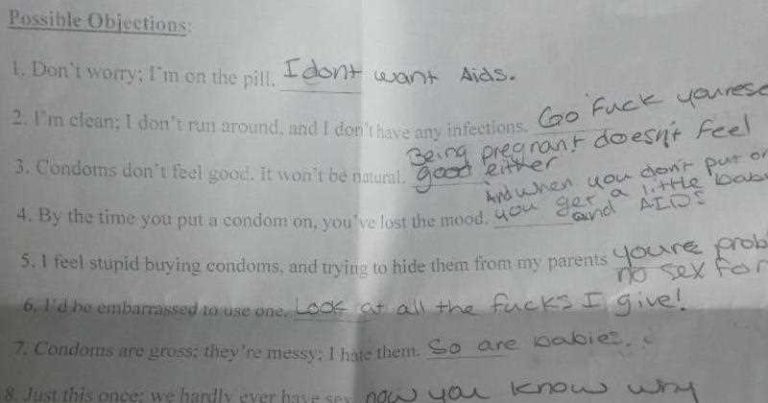 Possible Objections:
1. Don't worry; I'm on the pill. I dont want Aids.
2. I'm clean; I don't run around, and I don't have any infections. Go Fuck yourese
Being pregnant doesn't feel
3. Condoms don't feel good. It won't be natural. good either
And when you don't put
4. By the time you put a condom on, you've lost the mood. you get a little bab
and AIDS
5. I feel stupid buying condoms, and trying to hide them from my parents youre prob
no sex For
6. I'd be embarrassed to use one. Look at all the fucks I give!
7. Condoms are gross; they're messy; I hate them. So are babies.
8. Just this once; we hardly ever have sex now you know why